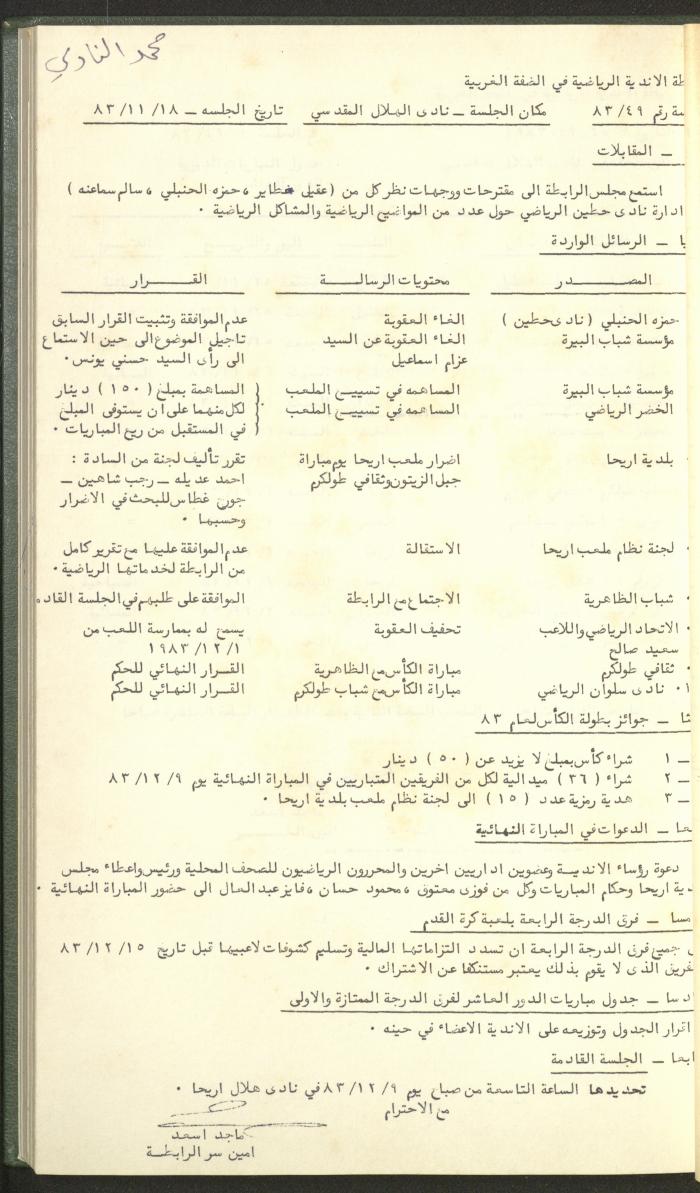 محمد النادي
طة الاندية الرياضية في الضفة الغربية
سة رقم ٨٣/٤٩ مكان الجلسة ــ نادى الهلال المقدسي تاريخ الجلسه ــ ٨٣/١١/١٨
ــ المقابلات
استمع مجلس الرابطة الى مقترحات ووجهات نظر كل من ( عقيل خطاير ، حمزه الحنبلي ، سالم سماعنه )
ادارة نادى حطين الرياضي حول عدد من المواضيع الرياضية والمشاكل الرياضية ٠
يا ــ الرسائل الواردة
المصـــدر محتويات الرسالـــة القـــرار
حمزه الحنبلي ( نادى حطين ) الغاء العقوبة عدم الموافقة وتثبيت القرار السابق
مؤسسة شباب البيرة الغاء العقوبة عن السيد تاجيل الموضوع الى حين الاستماع
عزام اسماعيل الى رأى السيد حسني يونس ٠
مؤسسة شباب البيرة المساهمه في تسييـج الملعب المساهمة بمبلغ ( ١٥٠ ) دينار
الخضر الرياضي المساهمه في تسييـج الملعب لكل منهما على ان يستوفى المبلغ
في المستقبل من ريع المباريات ٠
٠ بلدية اريحا اضرار ملعب اريحا يوم مباراة تقرر تأليف لجنة من السادة :
جبل الزيتون وثقافي طولكرم احمد عديله ــ رجب شاهين ــ
جورج غطاس للبحث في الاضرار
وحسبها ٠
٠ لجنة نظام ملعب اريحا الاستقالة عدم الموافقة عليها مع تقرير كامل
من الرابطة لخدماتها الرياضية ٠
٠ شباب الظاهرية الاجتماع مع الرابطة الموافقة على طلبهم في الجلسة القاد
٠ الاتحاد الرياضي واللاعب تخفيف العقوبة يسمح له بممارسة اللعب من
سعيد صالح ١٩٨٣/١٢/١
٠ ثقافي طولكرم مباراة الكأس مع الظاهرية القـرار النهائي للحكم
١٠ نادى سلوان الرياضي مباراة الكأس مع شباب طولكرم القـرار النهائي للحكم
ثا ــ جوائز بطولة الكأس لعام ٨٣
١ ــ شراء كأس بمبلغ لا يزيد عن ( ٥٠ ) دينار
٢ ــ شراء ( ٣٦ ) ميدالية لكل من الفريقين المتباريين في المباراة النهائية يوم ٨٣/١٢/٩
٣ ــ هدية رمزية عدد ( ١٥ ) الى لجنة نظام ملعب بلدية اريحا ٠
عا ــ الدعوات في المباراة النهائية
دعوة رؤساء الانديـة وعضوين اداريين اخرين والمحررون الرياضيون للصحف المحلية ورئيس واعضاء مجلس
دية اريحا وحكام المباريات وكل من فوزى معتوق ، محمود حسان ، فايز عبد العال الى حضور المباراة النهائية ٠
مسا ــ فرق الدرجة الرابعة بلعبة كرة القدم
جميع فرق الدرجة الرابعة ان تسدد التزاماتها المالية وتسليم كشوفات لاعبيها قبل تاريخ ٨٣/١٢/١٥
فريق الذى لا يقوم بذلك يعتبر مستنكفا عن الاشتراك ٠
دسا ــ جدول مباريات الدور العاشر لفرق الدرجة الممتازة والاولى
اقرار الجدول وتوزيعه على الاندية الاعضاء في حينه ٠
ابعا ــ الجلسة القادمة
تحديدها الساعة التاسعة من صباح يوم ٨٣/١٢/٩ في نادى هلال اريحا ٠
مع الاحترام
ماجد اسعد
امين سر الرابطـة